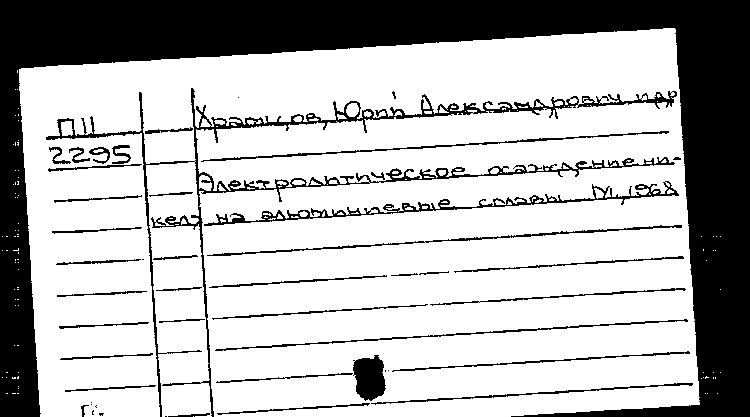 П11
Юрий Александрович и др
2295
Электролитическое осаждение ни-
келя на алюминиевые сплавы М., 1968